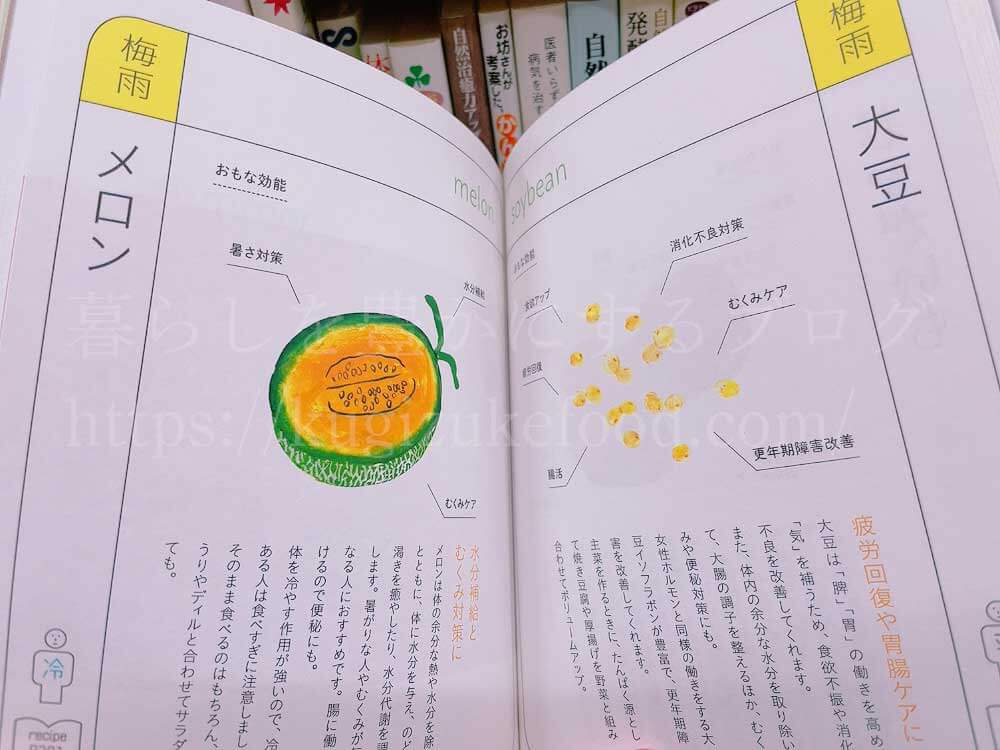 梅雨
メロン
おもな効能
melon
暑さ対策
水分補給
むくみケア
水分補給と
むくみ対策に
メロンは体の余分な熱や水分を除
とともに、体に水分を与え、のど
渇きを癒やしたり、水分代謝を調
します。暑がりな人やむくみが気
なる人におすすめです。腸に働
けるので便秘にも。
体を冷やす作用が強いので、冷
ある人は食べすぎに注意しまし
そのまま食べるのはもちろん、
うりやディルと合わせてサラダ
ても。
冷
recipe
梅雨
大豆
soybean
おもな効能
食欲アップ
消化不良対策
むくみケア
疲労回復
腸活
更年期障害改善
疲労回復や胃腸ケアに
大豆は「脾」「胃」の働きを高め
「気」を補うため、食欲不振や消化
不良を改善してくれます。
また、体内の余分な水分を取り除い
て、大腸の調子を整えるほか、むく
みや便秘対策にも。
女性ホルモンと同様の働きをする大
豆イソフラボンが豊富で、更年期障
害を改善してくれます。
主菜を作るときに、たんぱく源とし
て焼き豆腐や厚揚げを野菜と組み
合わせてボリュームアップ。
自然治癒力アッ
お坊さんが
考案した、
医者いらず
病気を治す
自然
発酵
暮らしを豊かにするブログ
https://kugizukefood.com/